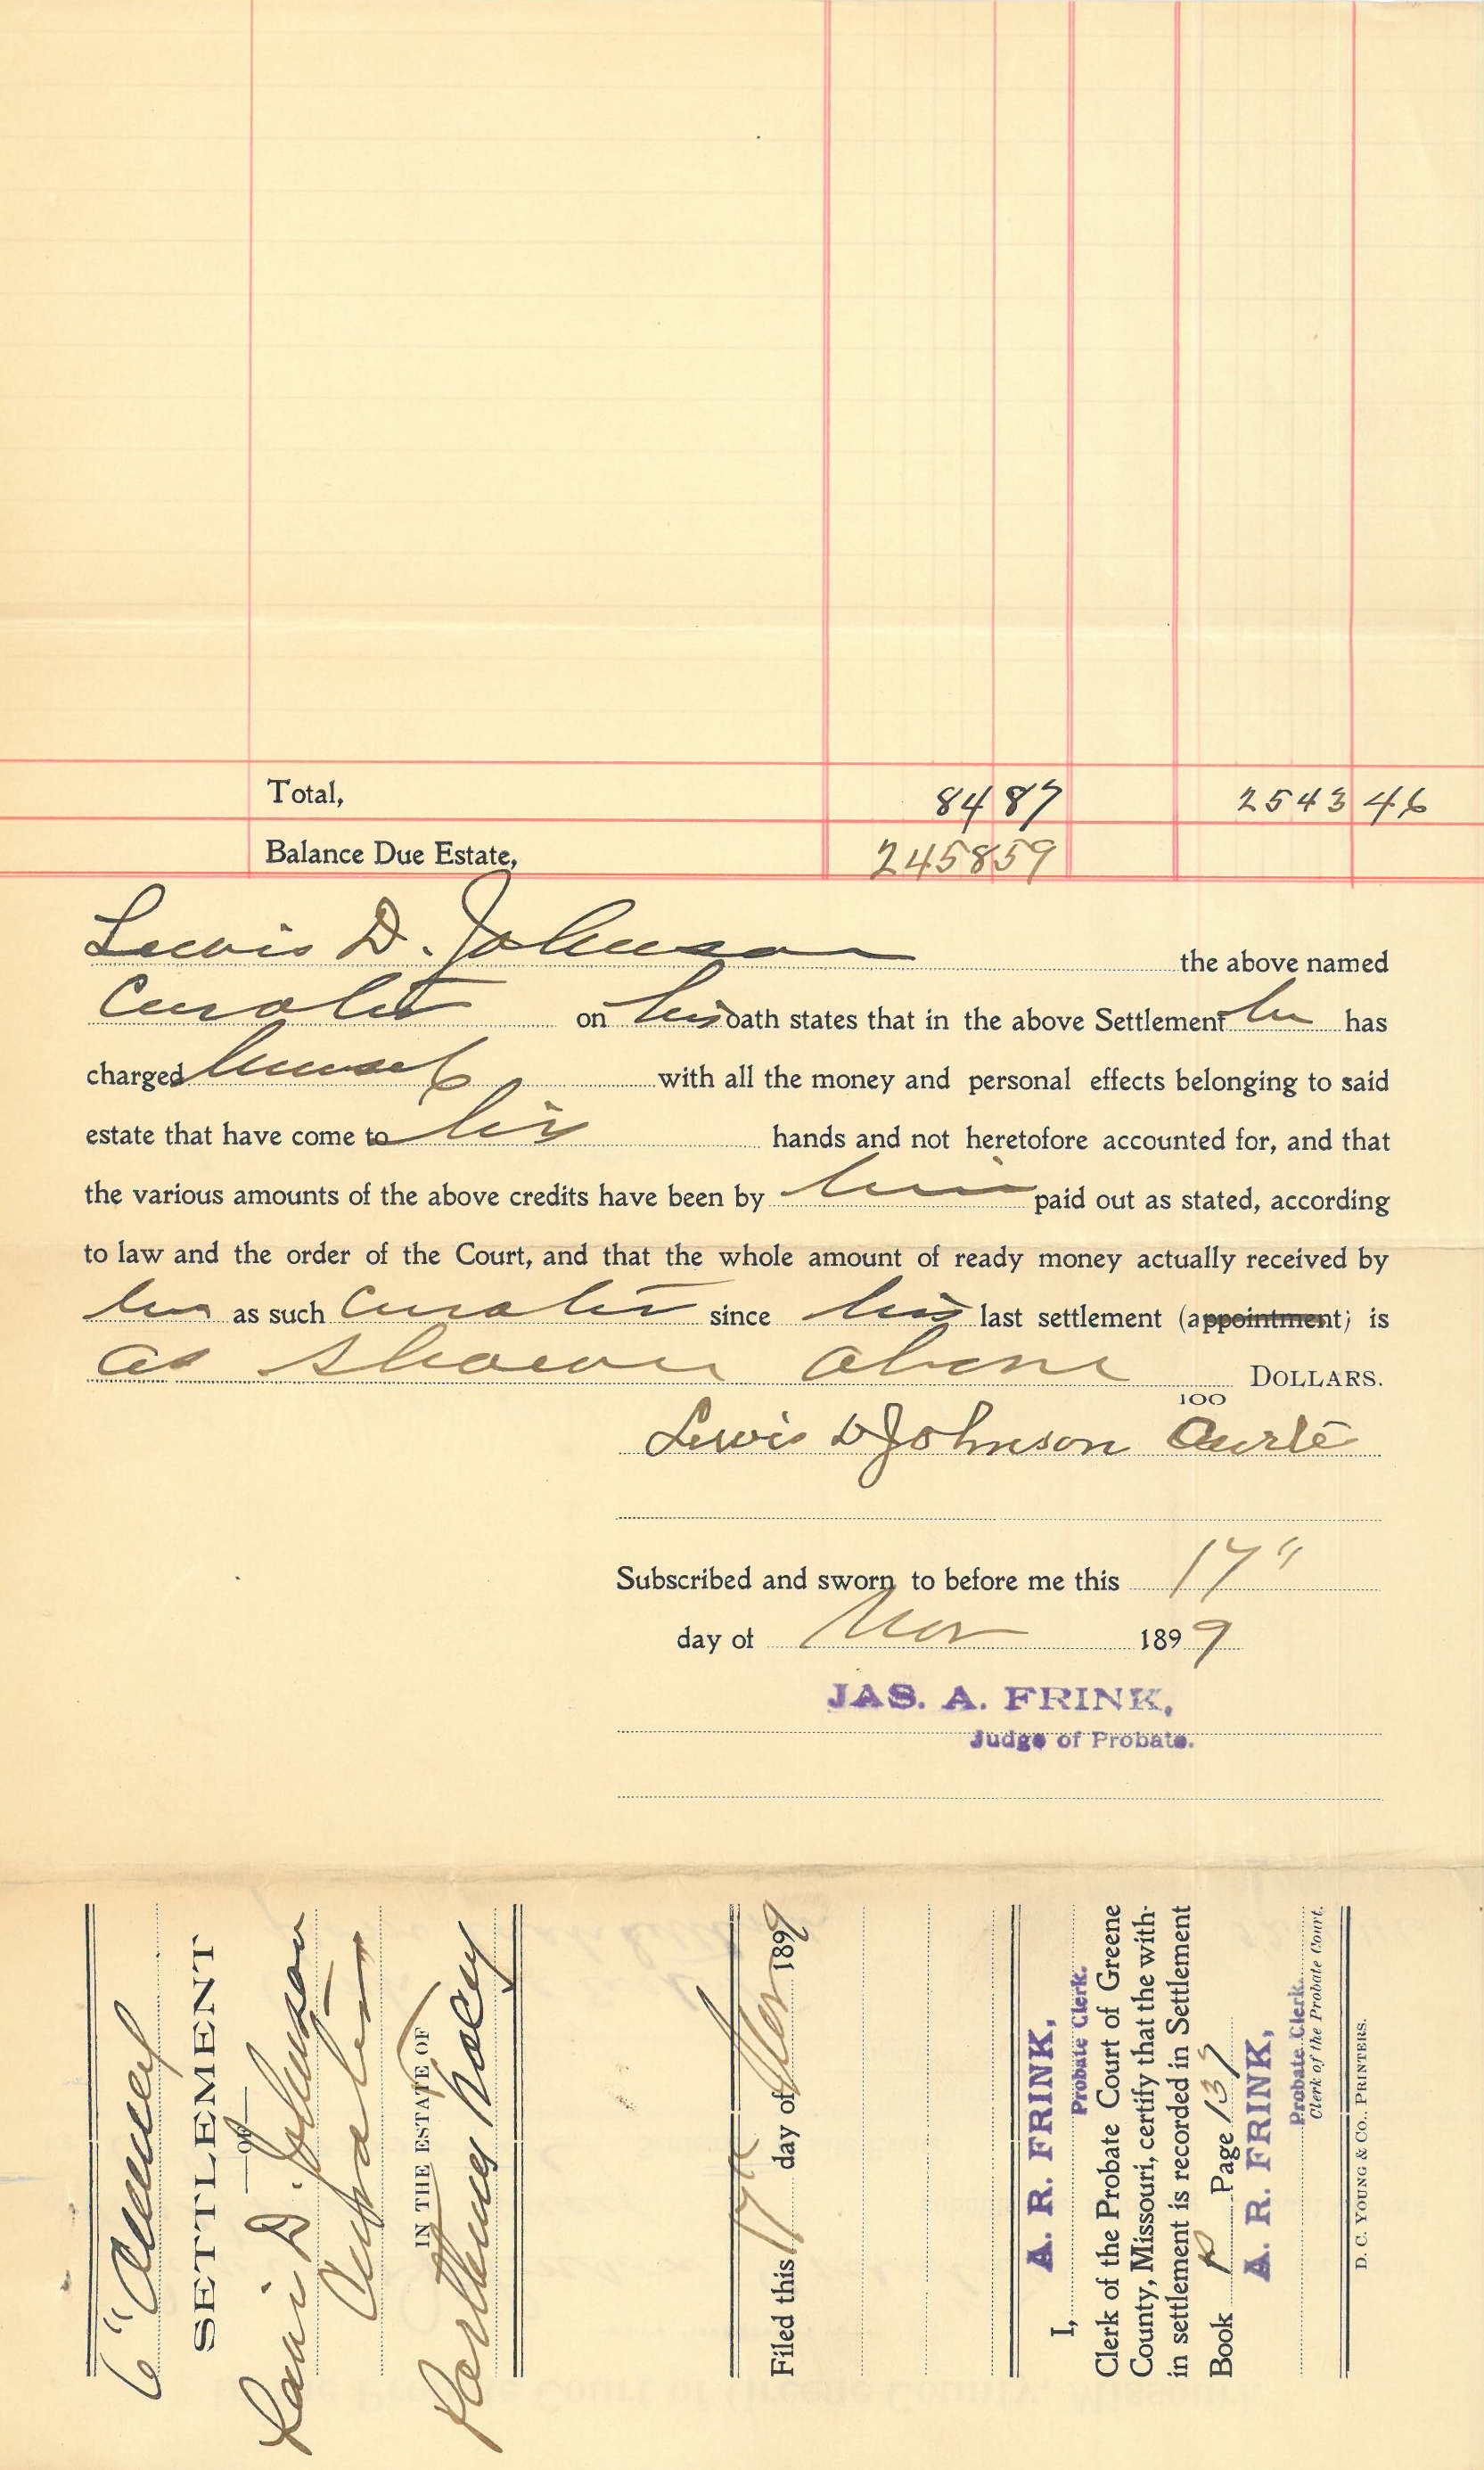 Total, 84 87 2543 46
Balance Due Estate, 2458 59
Lewis D. Johnson the above named
Curator on his oath states that in the above Settlement he has
charged himself with all the money and personal effects belonging to said
estate that have come to his hands and not heretofore accounted for, and that
the various amounts of the above credits have been by him paid out as stated, according
to law and the order of the Court, and that the whole amount of ready money actually received by
him as such Curator since his last settlement (appointment) is
as shown above DOLLARS.
100
Lewis D Johnson
Subscribed and sworn to before me this 17"
day of Nov 1899
JAS. A. FRINK,
Judge of Probate.
6" Annual
SETTLEMENT
—OF—
Lewis D. Johnson
Curator
IN THE ESTATE OF
Filed this 17th day of Nov 1899
A. R. FRINK,
I, Probate Clerk.
Clerk of the Probate Court of Greene
County, Missouri, certify that the with-
in settlement is recorded in Settlement
Book Page 139
A. R. FRINK,
Probate Clerk.
Clerk of the Probate Court.
D. C. YOUNG & CO., PRINTERS.